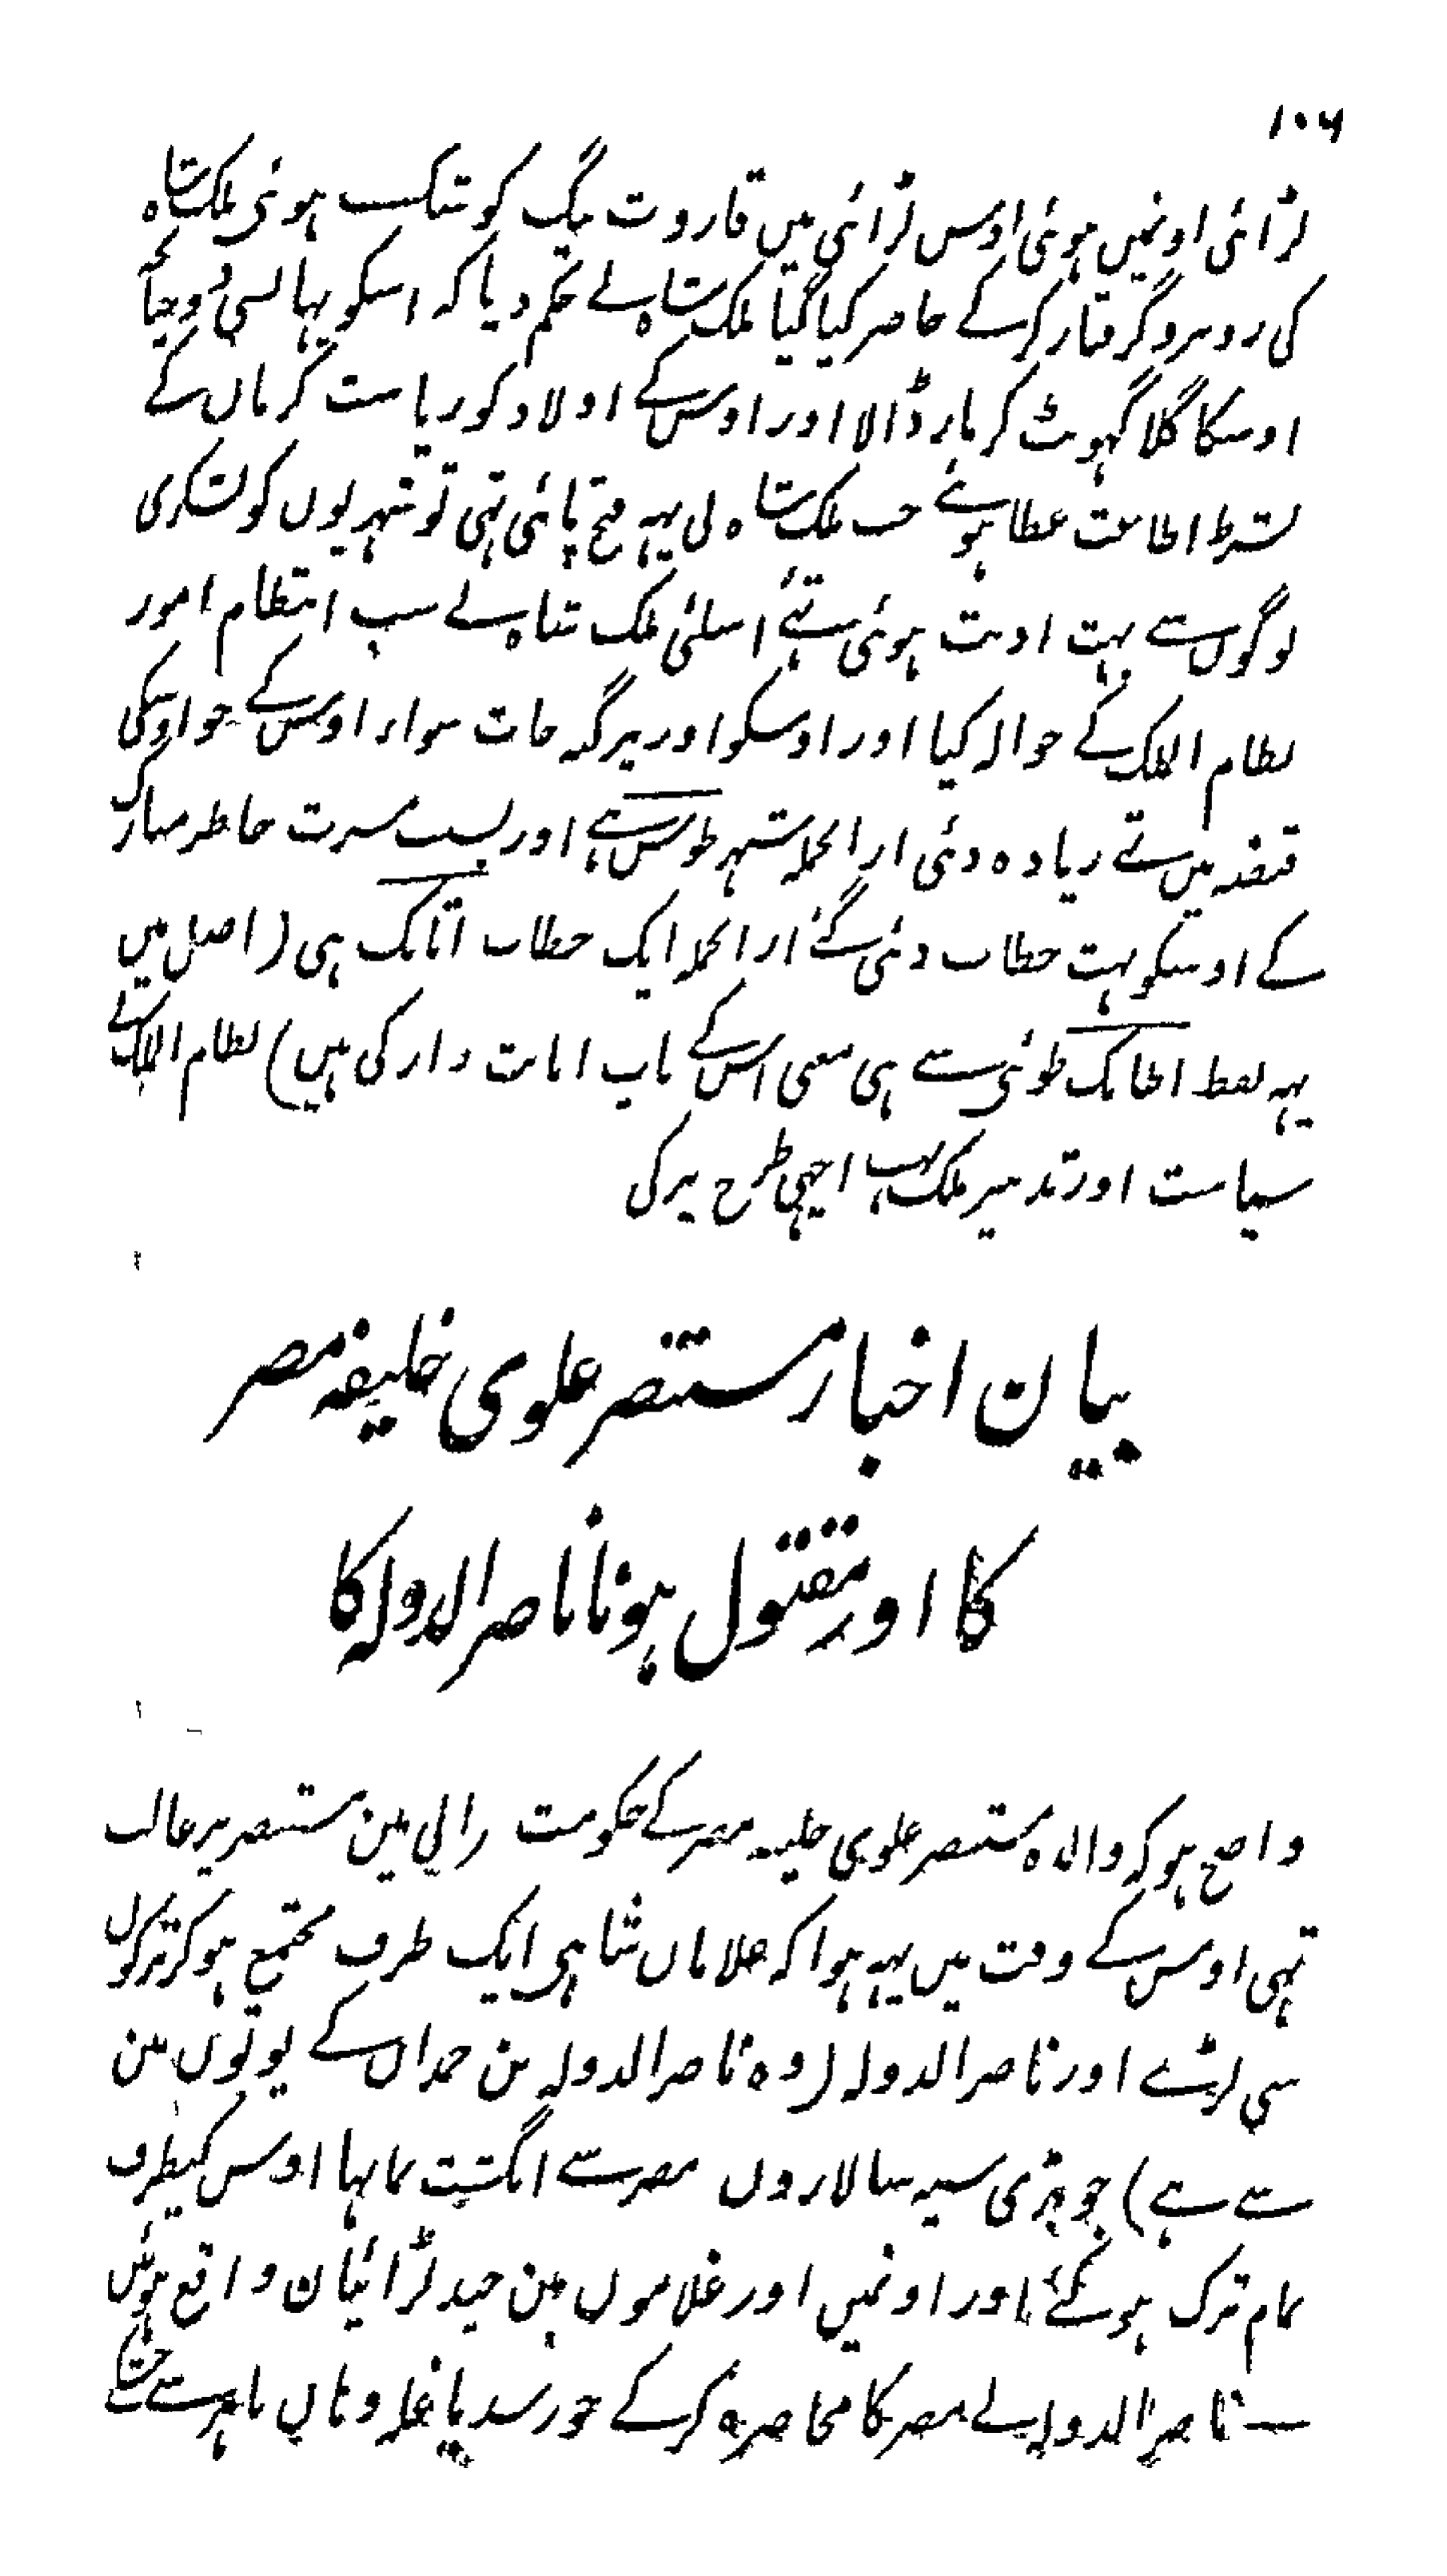 ۱۰۶
لڑائی اونمیں ہوئی اوس لڑائی میں قاروت بیگ کو شکست ہوئی ملک شاہ
کی روبرو گرفتار کرکے حاضر کیا گیا ملک شاہ نے حکم دیا کہ اسکو پہانسی دو چنانچہ
اوسکا گلا گہونٹ کر مار ڈالا اور اوس کے اولاد کو ریاست کرمان کے
بشرط اطاعت عطا ہوئے جب ملک شاہ نی یہہ فتح پائی تہی تو شہریوں کو لشکری
لوگوں سے بہت اذیت ہوئی تہے اسلئی ملک شاہ نے سب انتظام امور
نظام الملک کے حوالہ کیا اور اوسکو اور پرگنہ جات سواء اوس کے جو اوسکی
قبضہ میں تے زیادہ دئی ازانجملہ شہر طوس ہے اور بسبب مسرت خاطر مبارک
کے اوسکو بہت خطاب دئی گئے ازانجملہ ایک خطاب اتابک ہی (اصل میں
یہہ لفظ اطابک طوئی سے ہی معنی اس کے باپ امانت دار کی ہیں) نظام الملک نے
سیاست اور تدبیر ملک بہت اچہی طرح پر کی
بیان اخبار مستنصر علوی خلیفہ مصر
کا اور مقتول ہونا ناصر الدولہ کا
واضح ہو کہ والدہ مستنصر علوی خلیفہ مصر کے حکومت رانی مین مستنصر پر غالب
تہی اوس کے وقت میں یہہ ہوا کہ غلامان شاہی ایک طرف مجتمع ہو کر ترکوں
سی لڑے اور ناصر الدولہ (وہ ناصر الدولہ بن حمدان کے پوتوں مین
سے ہے) جو بڑی سپہ سالاروں مصر سے انگشت نما تہا اوس کیطرف
تمام ترک ہو گئے اور اونمیں اور غلاموں مین چند لڑائیان واقع ہوئیں
— ناصر الدولہ نے مصر کا محاصرہ کرکے جو رسد یا غلہ وہاں باہر سے